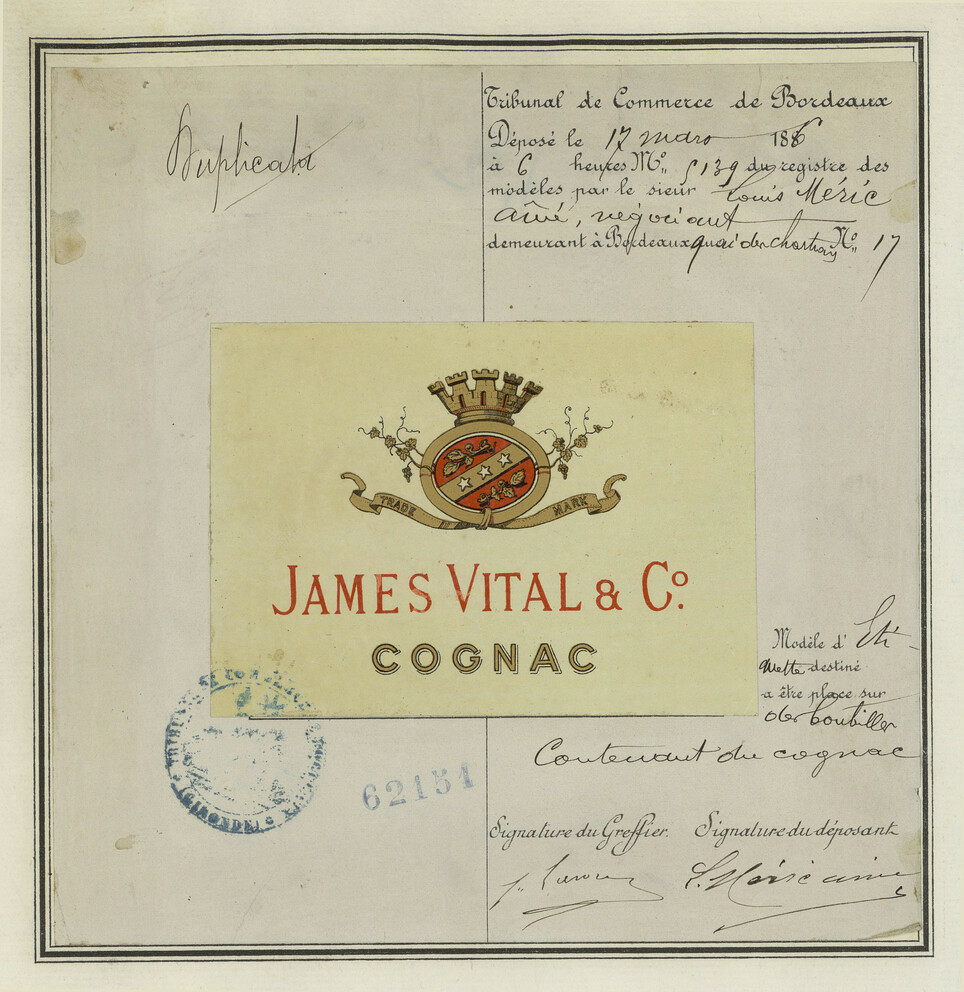 Duplicata
Tribunal de Commerce de Bordeaux
Déposé le 17 mars 1886
à 6 heures Nº 5139 du registre des
modèles par le sieur Louis Méric
aîné, négociant
demeurant à Bordeaux quai des Chartrons Nº 17
TRADE MARK
JAMES VITAL & Cº.
COGNAC
Modèle d' Eti-
quette destiné
a être place sur
des bouteilles
Contenant du cognac
TRIBUNAL DE COMMERCE
(GIRONDE)
62151
Signature du Greffier. Signature du déposant
L. Méric aîné